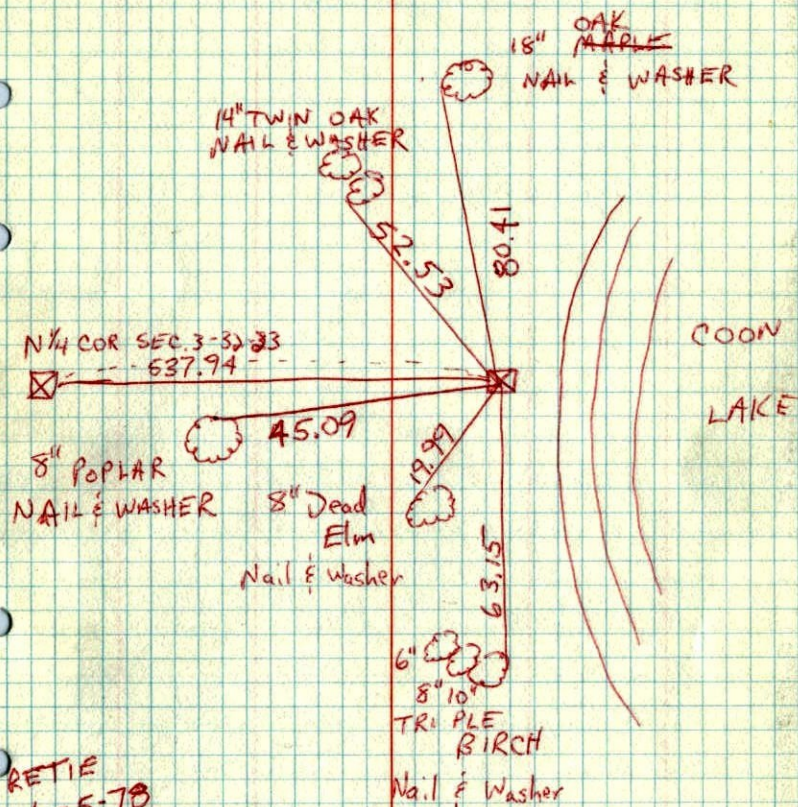 OAK
18" MAPLE
NAIL & WASHER
14" TWIN OAK
NAIL & WASHER
52.53
80.41
N 1/4 COR SEC. 3-32-23
637.94
COON
LAKE
45.09
19.99
8" POPLAR
NAIL & WASHER
8" Dead
Elm
Nail & Washer
63.15
6"
8" 10"
TRIPLE
BIRCH
Nail & Washer
RETIE
5-78